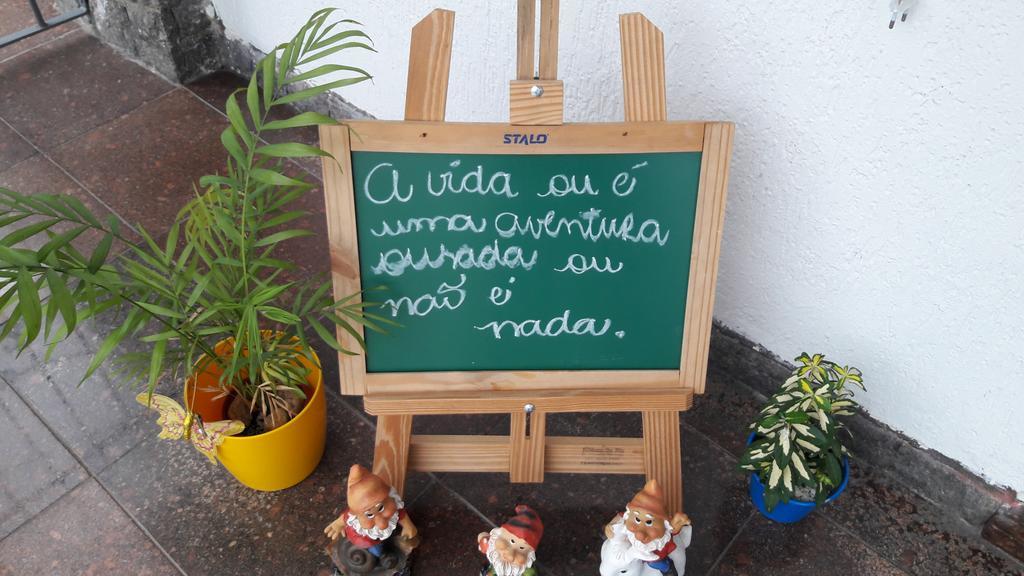 STALO
A vida ou é
uma aventura
ousada ou
não é
nada.